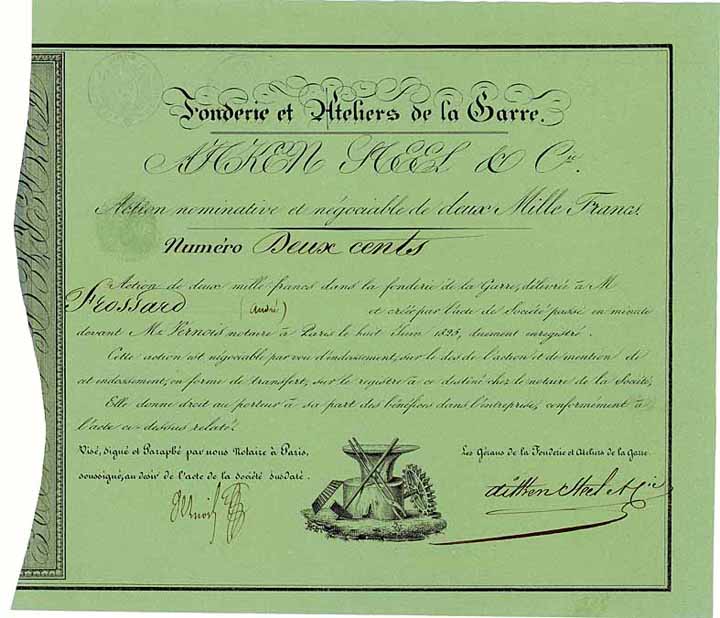 Fonderie et Ateliers de la Garre.
AITKEN STEEL & Cie.
Action nominative et négociable de deux Mille Francs.
Numéro Deux cents
Action de deux mille francs dans la fonderie de la Garre, délivrée à M
Frossard (André) et créée par l'acte de Société passé en minute
devant Me. Vernois notaire à Paris le huit Juin 1825, duement enregistré.
Cette action est négociable par voie d'endossement, sur le dos de l'action et de mention de
cet endossement, en forme de transfert, sur le registre à ce destiné chez le notaire de la Société,
Elle donne droit au porteur à sa part des bénéfices dans l'entreprise, conformément à
l'acte ci-dessus relaté.
Visé, signé et Paraphé par nous Notaire à Paris,
soussigné, au desir de l'acte de la société susdaté.
Les Gérans de la Fonderie et Ateliers de la Garre.
Aitken Steel & Cie